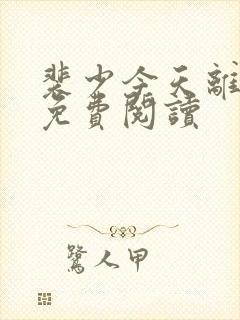 裴少今天離
免費閱讀
鷺人甲